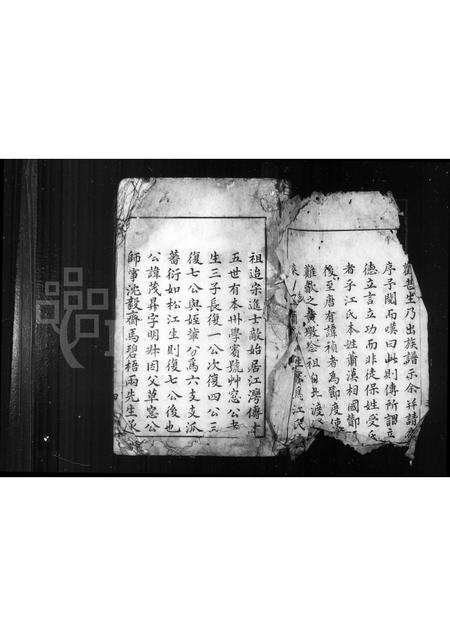 甚生乃出族譜示余并請
序予閱而嘆曰此則傳所謂立
德立言立功而非徒保姓受氏
者乎江氏本姓蕭漢相國酇
後至唐有諱禎者為鄱度使
難歙之黃墩念祖自北渡
生 為江氏
祖追宗進士敵始居江灣傳十
五世有本州學賓號艸窓公者
生三子長復一公次復四公三
復七公與姪輩分為六支支派
蕃衍如松江生則復七公後也
公諱茂昇字明昇因父草窓公
師事沈毅齋馬碧梧兩先生遂